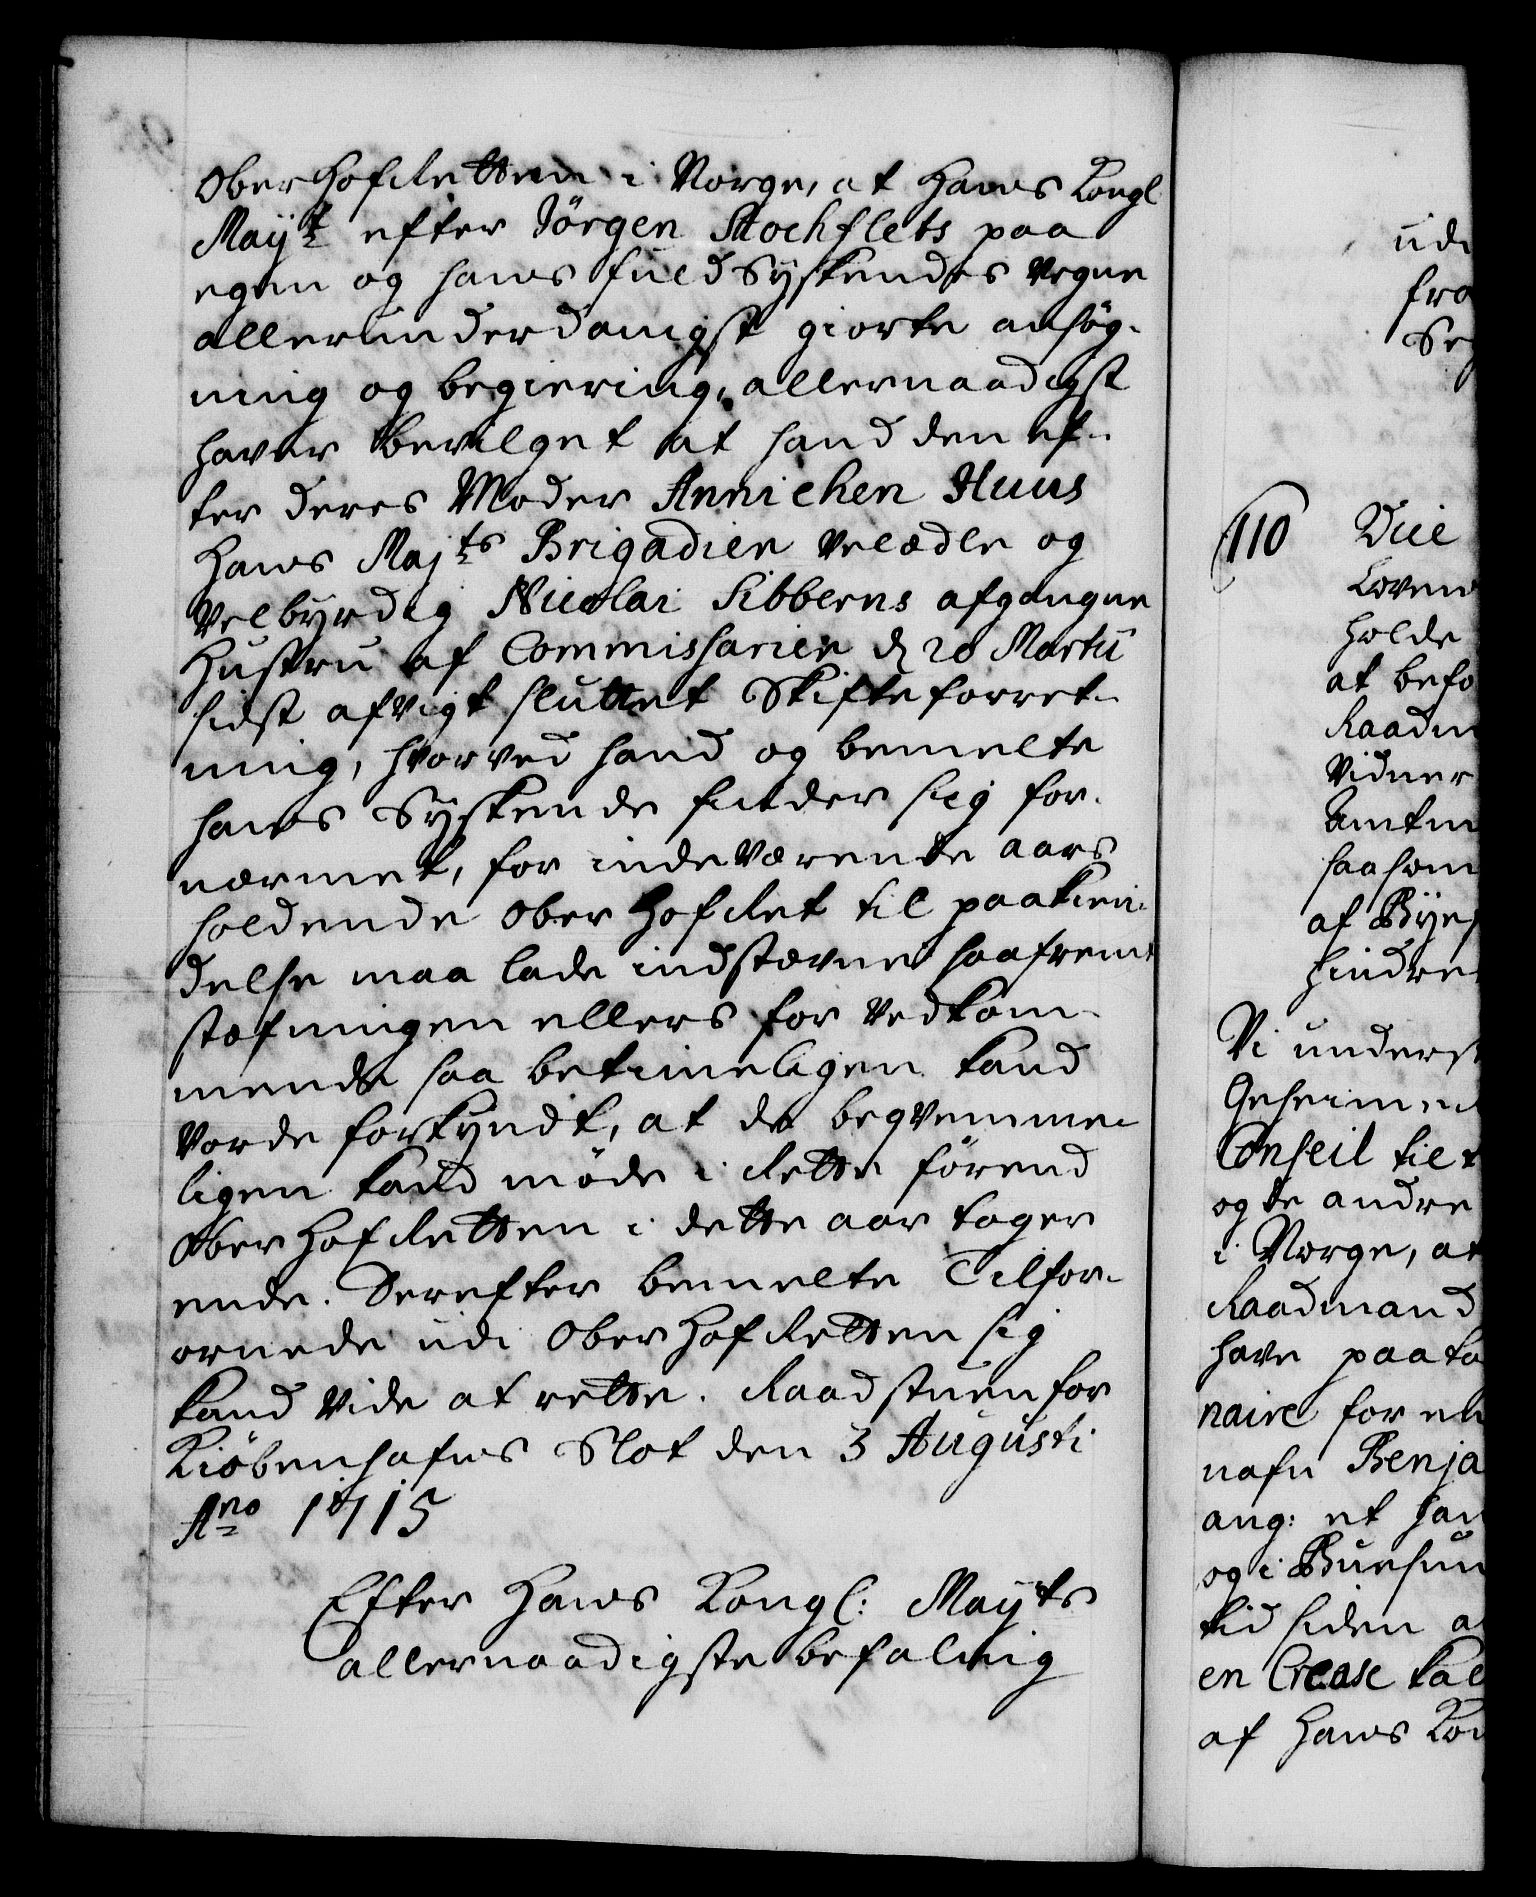 Ober Hof Retten i Norge, at Hans Kongl
Mayt efter Jörgen Stochflets paa
egen og hans fuld Syskendes Vegne
allerunderdanigst giorte ansøg-
ning og begiering, allernaadigst
haver bevilget at hand den ef-
ter deres Moder Annichen Huus
Hans Majts Brigadier Velædle og
Velbyrdig Nicolai Sibberns afgangne
Hustru af Commissarier d 20 Martii
sidst afvigt sluttet Skifteforret-
ning, hvorved hand og bemelte
hans Syskende finder sig for-
nærmet, for indeværende aars
holdende Ober Hof Ret til paakien-
delse maa lade indstævne saafremt
stæfningen ellers for Vedkom-
mende saa betimeligen kand
vorde forkyndt, at de beqvemme-
ligen kand møde i Rette førend
Ober Hof Retten i dette aar tager
ende. Derefter bemelte Tilfor-
ornede udi Ober Hof Retten sig
kand vide at rette. Raadstuen for
Kiøbenhafns Slot den 3 Augusti
Ano 1715
Efter Hans Kongl: Mayts
allernaadigste befaling
udi
fra
110 Vice
Loven
holde
at befo
Raadm
Vidner
Amtm
saasom
af Bye
hindre
Vi underst
Geheime
Conseil til
og de andre
i Norge, at
Raadmand
have paata
naire for en
nafn Benja
ang: et han
og i
tid siden a
en Crease kal
af Hans Kon